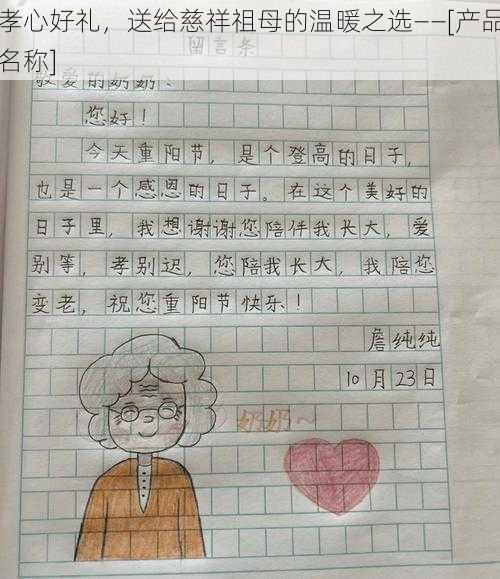 孝心好礼，送给慈祥祖母的温暖之选——[产品
名称]
留言条
敬爱的奶奶：
您好！
今天重阳节，是个登高的日子，
也是一个感恩的日子。在这个美好的
日子里，我想谢谢您陪伴我长大，爱
别等，孝别迟，您陪我长大，我陪您
变老，祝您重阳节快乐！
詹纯纯
10月23日
奶奶~